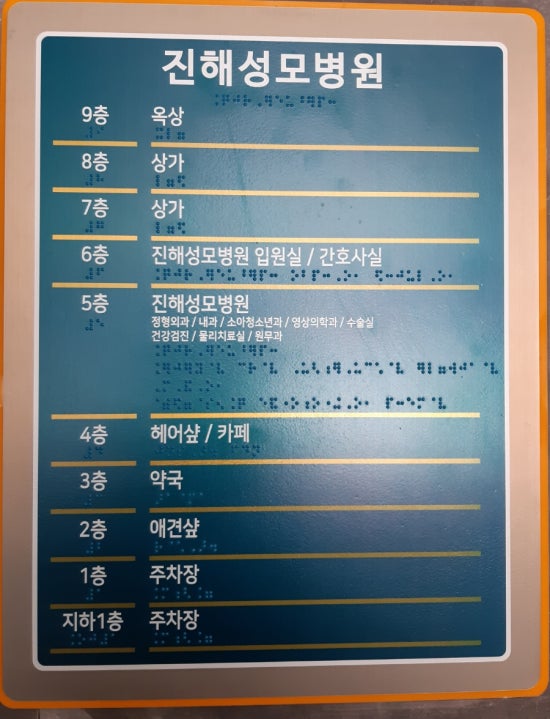 진해성모병원
9층 옥상
8층 상가
7층 상가
6층 진해성모병원 입원실 / 간호사실
5층 진해성모병원
정형외과 / 내과 / 소아청소년과 / 영상의학과 / 수술실
건강검진 / 물리치료실 / 원무과
4층 헤어샾 / 카페
3층 약국
2층 애견샾
1층 주차장
지하1층 주차장